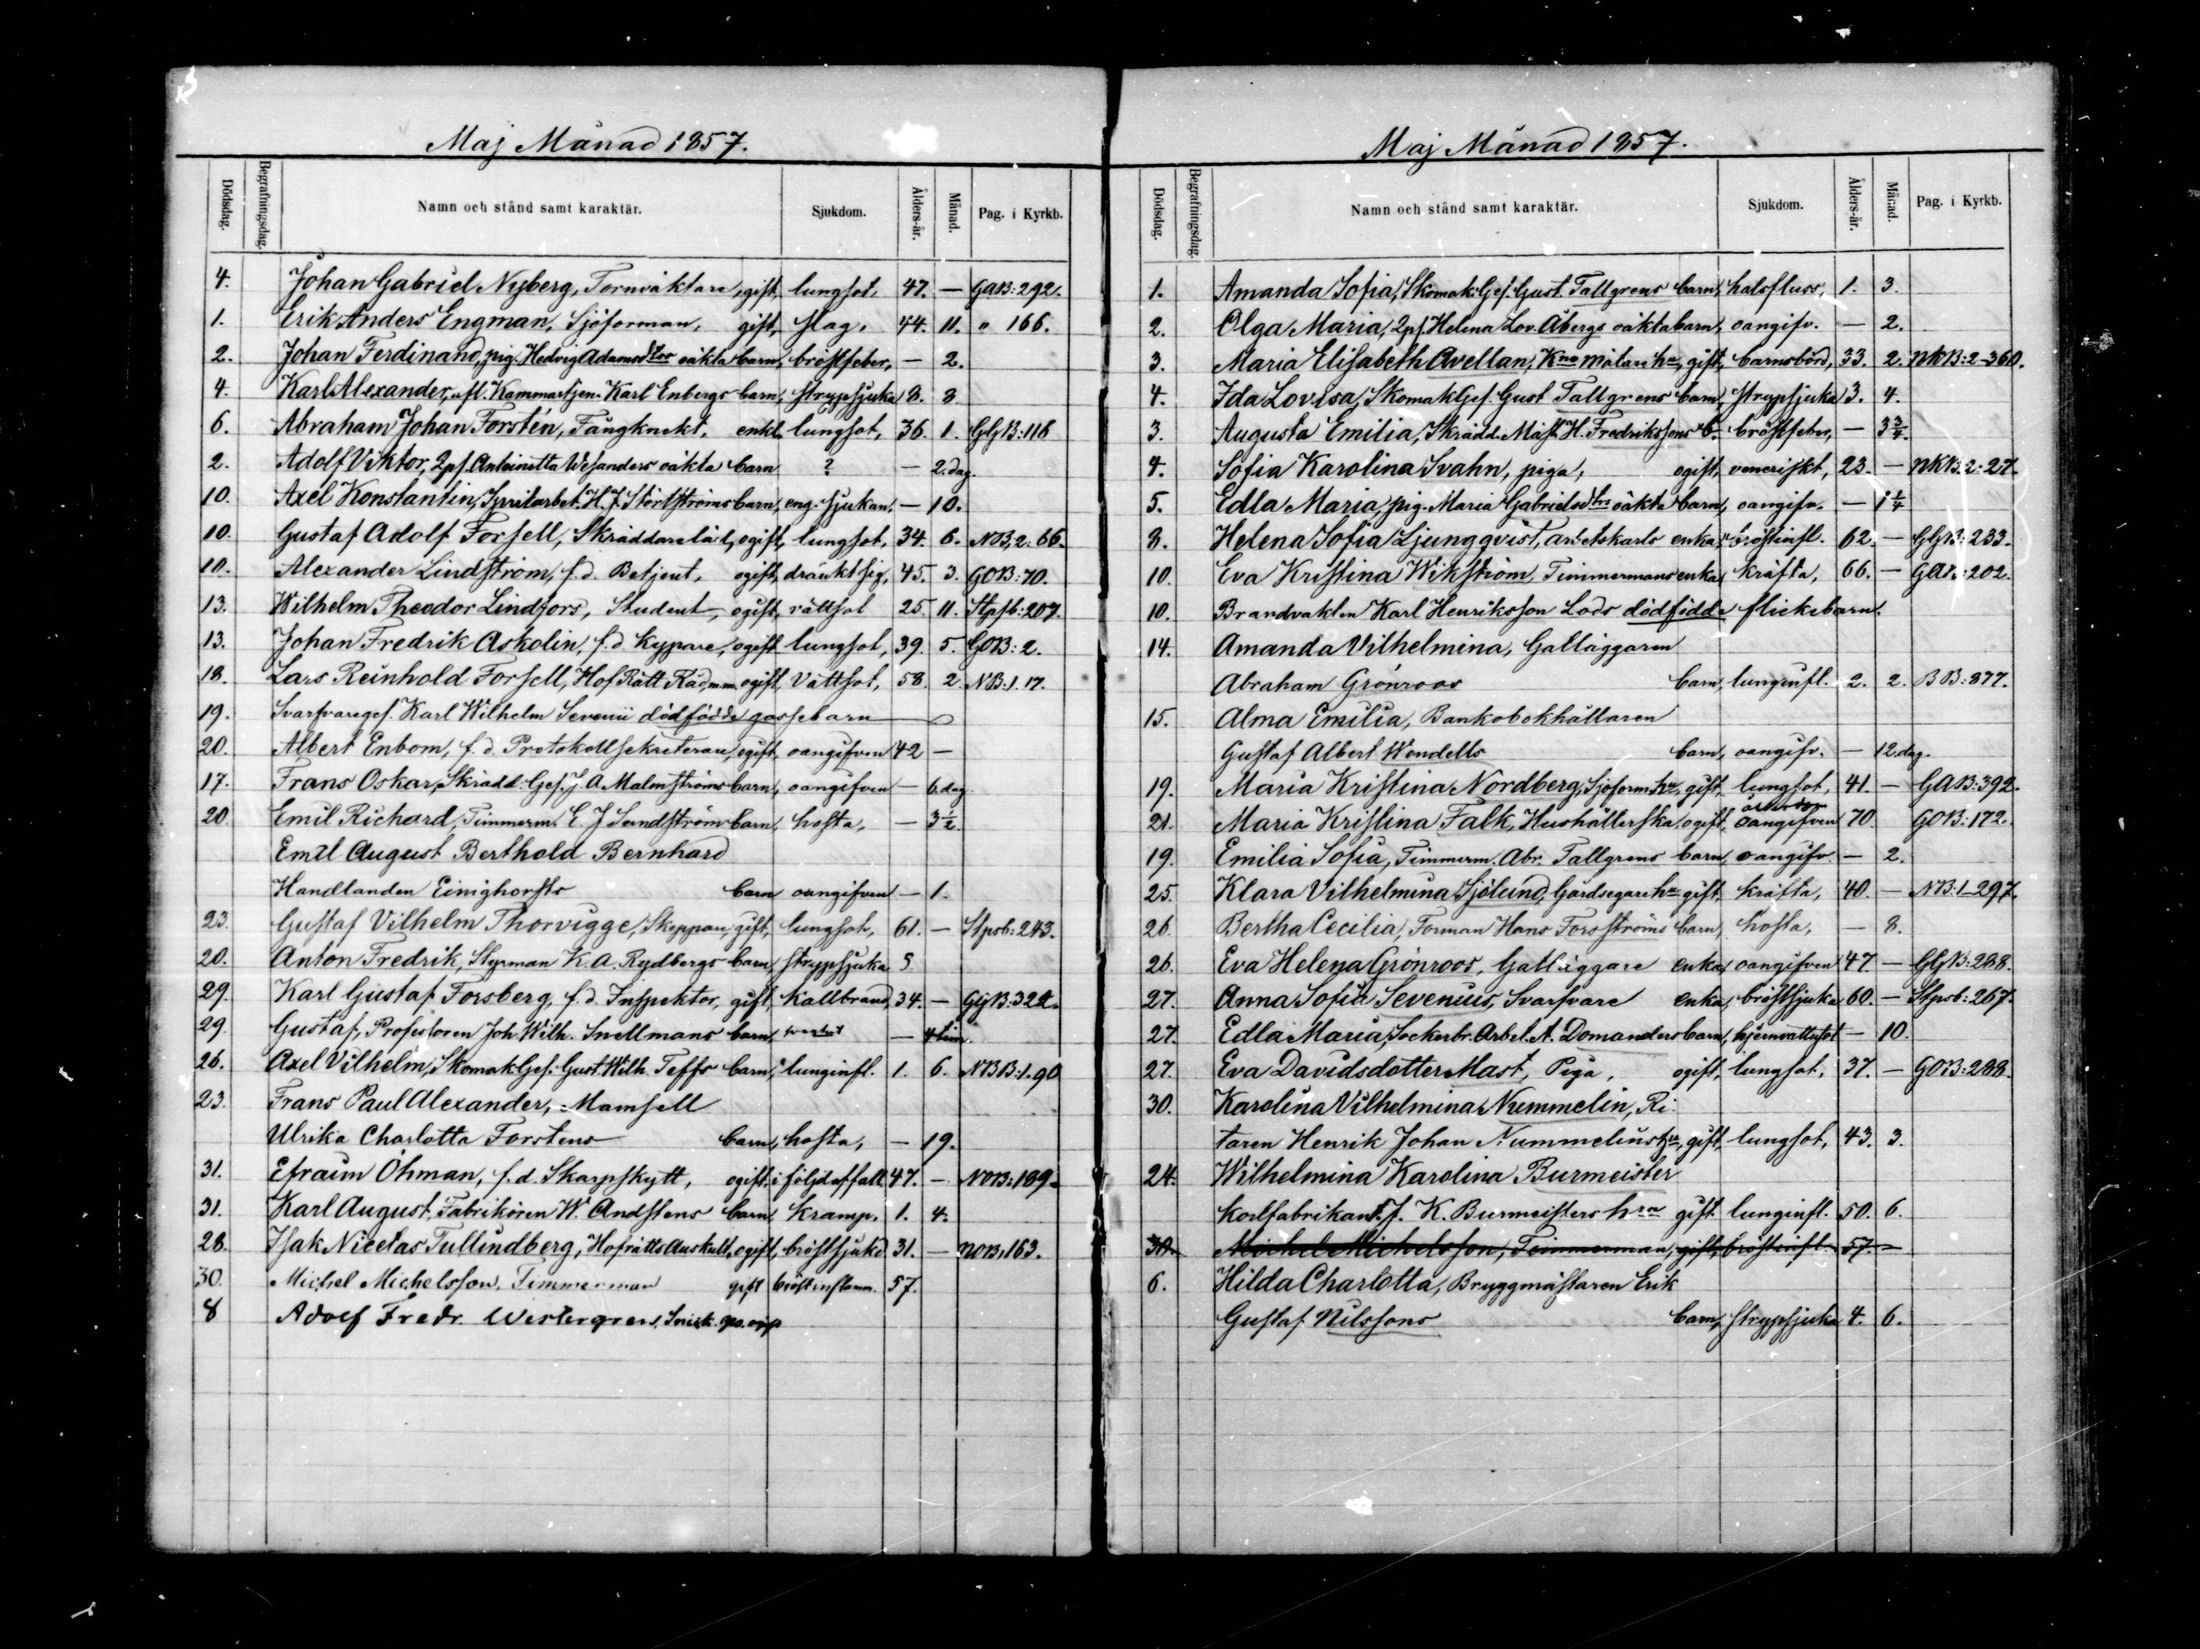 Maj Månad 1857.
Dödsdag. Begrafningsdag. Namn och stånd samt karaktär. Sjukdom. Ålders-år. Månad. Pag. i Kyrkb.
4. Johan Gabriel Nyberg, Tornväktare, gift, lungsot, 47. — GAB: 292.
1. Erik Anders Engman, Sjöforman, gift, slag, 44. 11. " 166.
2. Johan Ferdinand, pig. Hedvig Adamsdtrs oäkta barn, bröstfeber, — 2.
4. Karl Alexander, afl. Kammartjen. Karl Enbergs barn, strypsjuka 8. 8
6. Abraham Johan Forstén, Fångknekt, enkl. lungsot, 36. 1. GGB: 118
2. Adolf Viktor, Qpf. Antoinetta Wesanders oäkta barn ? — 2. dag.
10. Axel Konstantin, Spritarbet. H. J. Störtströms barn, eng. sjukan, — 10.
10. Gustaf Adolf Forsell, Skräddarelärl, ogift, lungsot, 34. 6. NB. 2. 66.
10. Alexander Lindström, f.d. Betjent, ogift, dränkt sig, 45. 3. GOB: 70.
13. Wilhelm Theodor Lindfors, Student, ogift, röttsot 25 11. Stpsb: 207.
13. Johan Fredrik Askolin, f.d. Kypare, ogift lungsot, 39. 5. GOB: 2.
18. Lars Reinhold Forsell, Hof Rätt Rådmm. ogift, Vattsot, 58. 2 NB: 1. 17.
19. Svarfvareges. Karl Wilhelm Sevenii dödfödde gossebarn
20. Albert Enbom, f.d. Protokollsekreterare, ogift, oangifven 42 —
17. Frans Oskar, Skrädd. Ges. J. A. Malmströms barn, oangifven — 6. dag
20. Emil Richard, Timmerm. E. J. Sandströms barn, hosta, — 3½.
Emil August Berthold Bernhard
Handlanden Einighorsts barn oangifven — 1.
23. Gustaf Vilhelm Thorvigge, Skeppare, gift, lungsot, 61. — Stpsb: 243.
20. Anton Fredrik, Styrman K. A. Rydbergs barn, strypsjuka 5.
29. Karl Gustaf Forsberg, f.d. Inspektor, gift, kallbrand, 34. — GGB. 324.
29. Gustaf, Professoren Joh. Wilh. Snellmans barn, — 4 tim.
26. Axel Vilhelm, Skomak. Ges. Gust. Wilh. Teffs barn, lunginfl. 1. 6. NBB: 1. 90
23. Frans Paul Alexander, Mamsell
Ulrika Charlotta Forstens barn, hosta, — 19.
31. Efraim Öhman, f.d. Skarpskytt, ogift. i följd af fall 47. — NOB: 109.
31. Karl August, Fabrikören W. Andstens barn, kramp, 1. 4.
28. Isak Nicetas Tullindberg, Hofrätts Auskult, ogift, bröstsjukd 31. — NOB, 163.
30. Michel Michelsson, Timmerman gift bröstinflamm. 57.
8 Adolf Fredr. Westergren, Snick.

Maj Månad 1857.
Dödsdag. Begrafningsdag. Namn och stånd samt karaktär. Sjukdom. Ålders-år. Månad. Pag. i Kyrkb.
1. Amanda Sofia, Skomak. Ges. Gust. Tallgrens barn, halsfluss, 1. 3.
2. Olga Maria, Qpf. Helena Lov. Åbergs oäkta barn, oangifv. — 2.
3. Maria Elisabeth Avellan, Kno målare hu, gift, barnsbörd, 33. 2. NKB: 2-360.
4. Ida Lovisa, Skomak Ges. Gust Tallgrens barn, strypsjuka 3. 4.
3. Augusta Emilia, Skrädd. Mäst. H. Fredrikssons b. bröstfeber, — 3¾.
4. Sofia Karolina Svahn, piga, ogift, veneriskt, 23. — NKB 2: 27.
5. Edla Maria, pig. Maria Gabrielsdtrs oäkta barn, oangifv. — 1¼
8. Helena Sofia Ljungqvist, arbetskarls enka, bröstinfl. 62. — GGB: 233.
10. Eva Kristina Wikström, Timmermans enka, kräfta, 66. — GAB: 202.
10. Brandvakten Karl Henriksson Lods dödfödda flickebarn.
14. Amanda Vilhelmina, Gatläggaren
Abraham Grönroos barn, lunginfl. 2. 2. BB: 877.
15. Alma Emilia, Bankobokhållaren
Gustaf Albert Wendells barn, oangifv. — 12. dag.
19. Maria Kristina Nordberg, Sjöform. hu, gift, lungsot, 41. — GAB: 392.
21. Maria Kristina Falk, Hushållerska, ogift, oangifven 70. GOB: 172.
19. Emilia Sofia, Timmerm. Abr. Tallgrens barn, oangifv. — 2.
25. Klara Vilhelmina Sjölund, Gårdsegare hu gift, kräfta, 40. — NB. 1-297.
26. Bertha Cecilia, Forman Hans Forsströms barn, hosta, — 8.
26. Eva Helena Grönroos, Gatläggare enka, oangifven 47. — GGB: 288.
27. Anna Sofia Sevenius, Svarfvare enka, bröstsjuka 60. — Stpsb: 267.
27. Edla Maria, Sockerbr. Arbet. A. Domanders barn, hjernvattusot — 10.
27. Eva Davidsdotter Mast, Piga, ogift, lungsot, 37. — GOB: 288.
30. Karolina Vilhelmina Nummelin, Ri-
taren Henrik Johan Nummelins hu, gift, lungsot, 43. 3.
24. Wilhelmina Karolina Burmeister
korkfabrikant. J. K. Burmeisters hru gift. lunginfl. 50. 6.
30. Michel Michelsson, Timmerman, gift, bröstinfl. 57. —
6. Hilda Charlotta, Bryggmästaren Erik
Gustaf Nilssons barn, strypsjuka 4. 6.